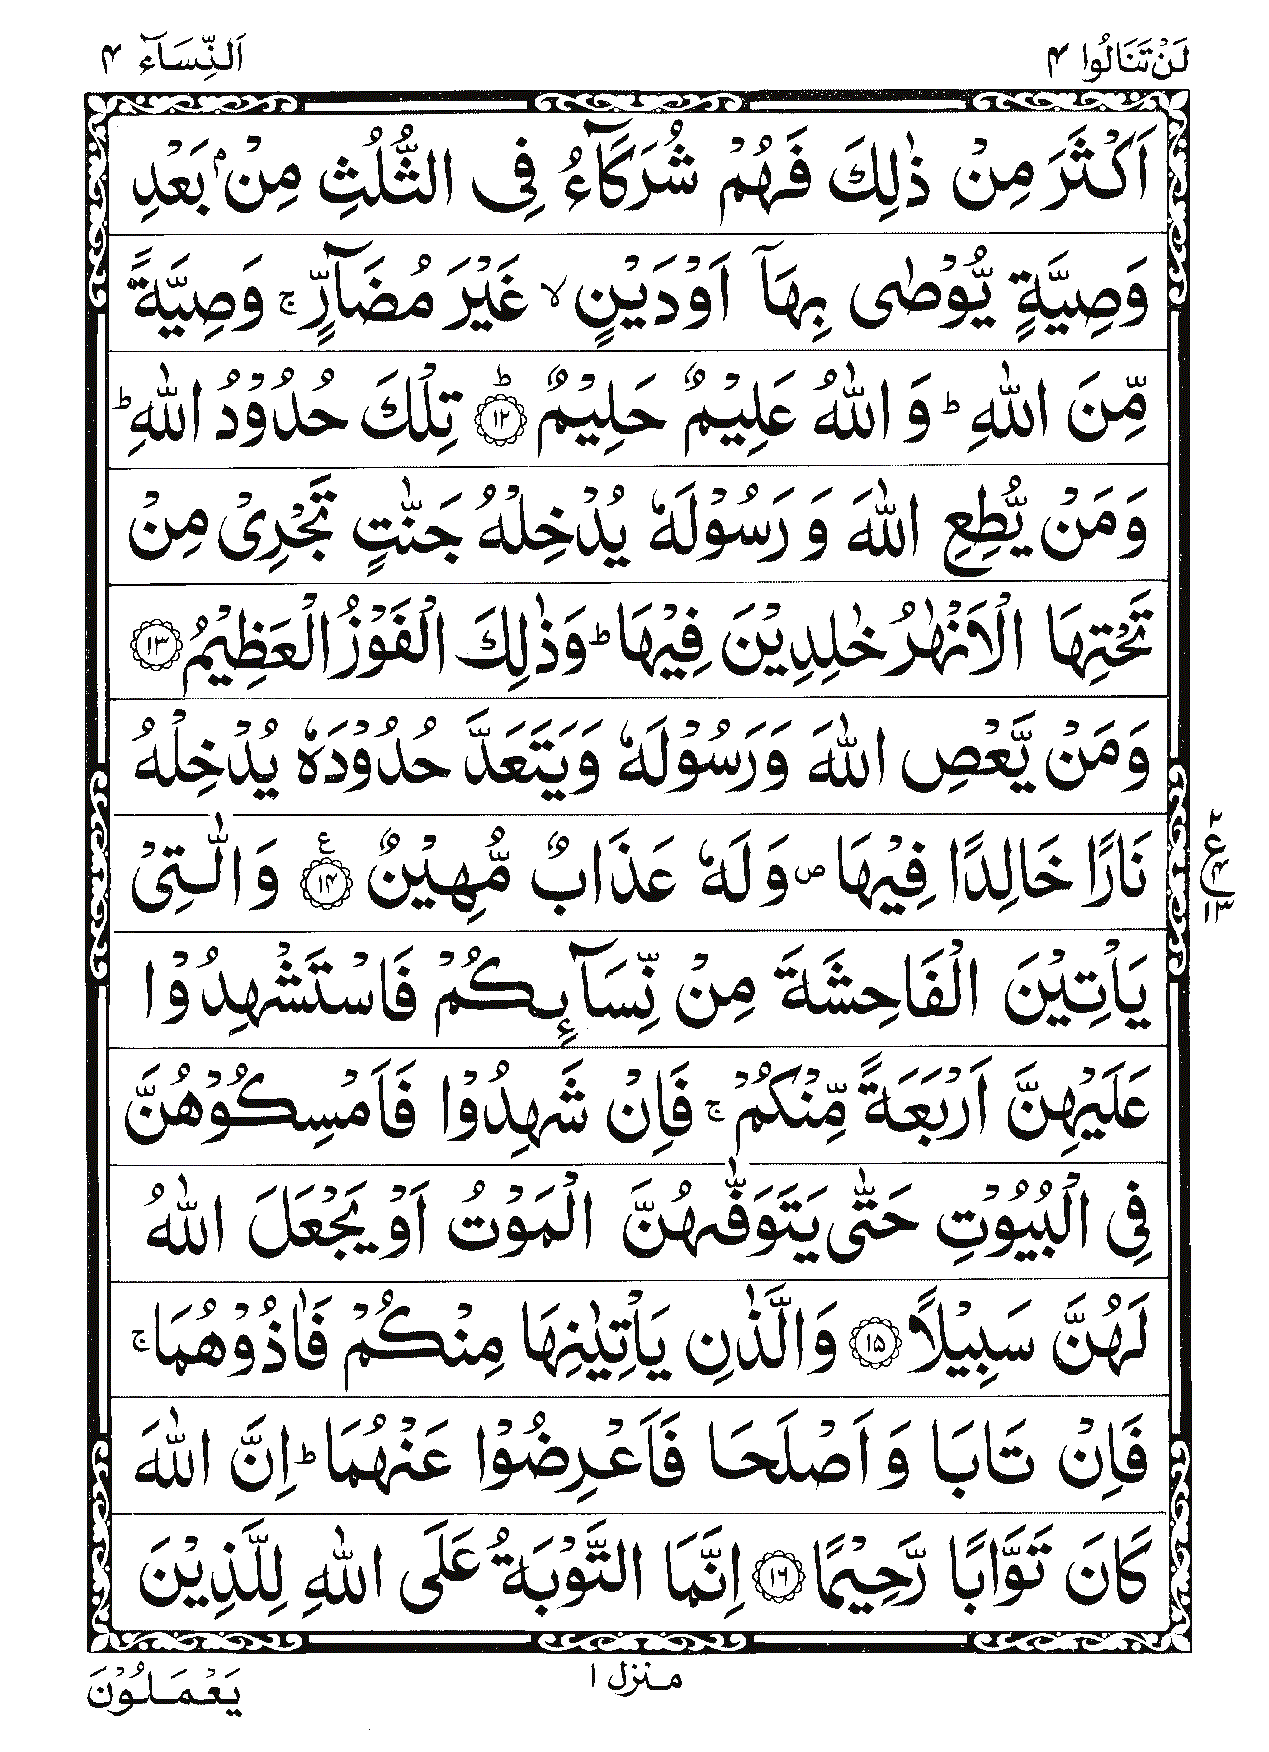 لَنْ تَنَالُوا ۴
اَلنِّسَآء ۴
اَكْثَرَ مِنْ ذٰلِكَ فَهُمْ شُرَكَآءُ فِی الثُّلُثِ مِنْۢ بَعْدِ
وَصِیَّةٍ یُّوْصٰی بِهَاۤ اَوْدَیْنٍ ۙ غَیْرَ مُضَآرٍّ ۚ وَصِیَّةً
مِّنَ اللّٰهِ ؕ وَ اللّٰهُ عَلِیْمٌ حَلِیْمٌ ؕ ۱۲ تِلْكَ حُدُوْدُ اللّٰهِ ؕ
وَمَنْ یُّطِعِ اللّٰهَ وَ رَسُوْلَهٗ یُدْخِلْهُ جَنّٰتٍ تَجْرِیْ مِنْ
تَحْتِهَا الْاَنْهٰرُ خٰلِدِیْنَ فِیْهَا ؕ وَذٰلِكَ الْفَوْزُ الْعَظِیْمُ ۱۳
وَمَنْ یَّعْصِ اللّٰهَ وَرَسُوْلَهٗ وَیَتَعَدَّ حُدُوْدَهٗ یُدْخِلْهُ
نَارًا خَالِدًا فِیْهَا ۪ وَ لَهٗ عَذَابٌ مُّهِیْنٌ ۱۴ ع وَ الّٰتِیْ
ع
۲
۴
۱۳
یَاْتِیْنَ الْفَاحِشَةَ مِنْ نِّسَآىِٕكُمْ فَاسْتَشْهِدُوْا
عَلَیْهِنَّ اَرْبَعَةً مِّنْكُمْ ۚ فَاِنْ شَهِدُوْا فَاَمْسِكُوْهُنَّ
فِی الْبُیُوْتِ حَتّٰی یَتَوَفّٰىهُنَّ الْمَوْتُ اَوْ یَجْعَلَ اللّٰهُ
لَهُنَّ سَبِیْلًا ۱۵ وَالَّذٰنِ یَاْتِیٰنِهَا مِنْكُمْ فَاٰذُوْهُمَا ۚ
فَاِنْ تَابَا وَ اَصْلَحَا فَاَعْرِضُوْا عَنْهُمَا ؕ اِنَّ اللّٰهَ
كَانَ تَوَّابًا رَّحِیْمًا ۱۶ اِنَّمَا التَّوْبَةُ عَلَی اللّٰهِ لِلَّذِیْنَ
منزل ۱
یَعْمَلُوْنَ